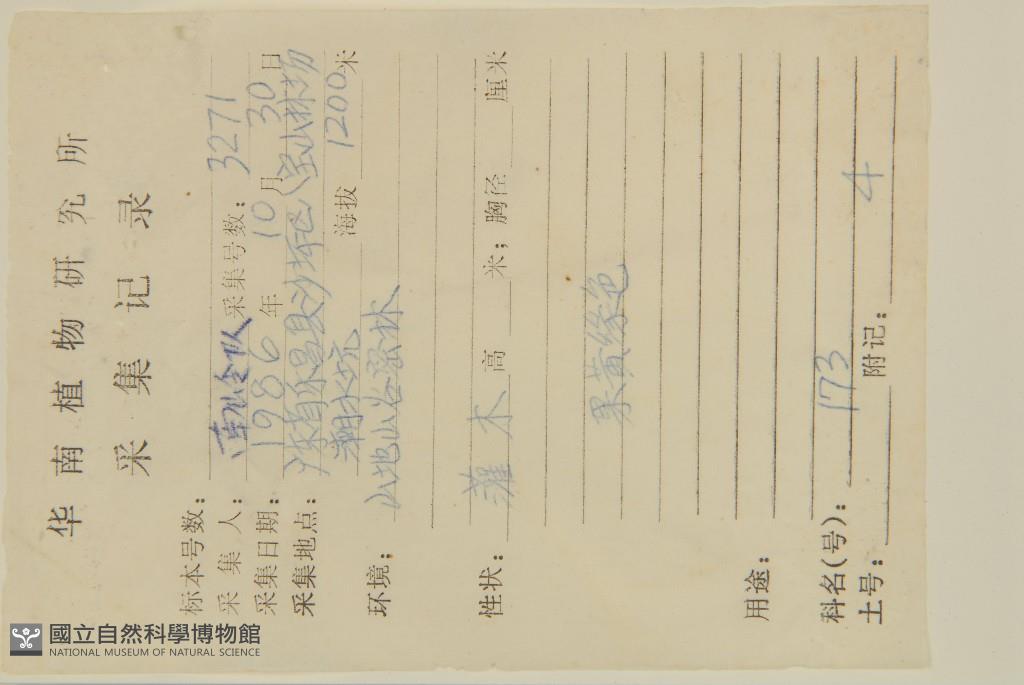 华南植物研究所
采集记录
标本号数：
采集人：南岭队 采集号数：3271
采集日期：1986年10月30日
采集地点：乐昌县沙坪区（宝山林场
海拔1200米
环境：山地山谷密林
性状：灌木 高 米；胸径 厘米
果黄绿色
用途：
科名(号)：173
土号： 附记：4
國立自然科學博物館
NATIONAL MUSEUM OF NATURAL SCIENCE